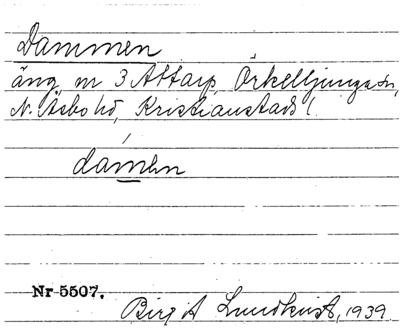 Dammen
äng nr 3 Attarp, Örkelljunga sn,
N. Åsbo hd, Kristianstads l
damen
Nr 5507.
Birgit Lundkvist, 1939